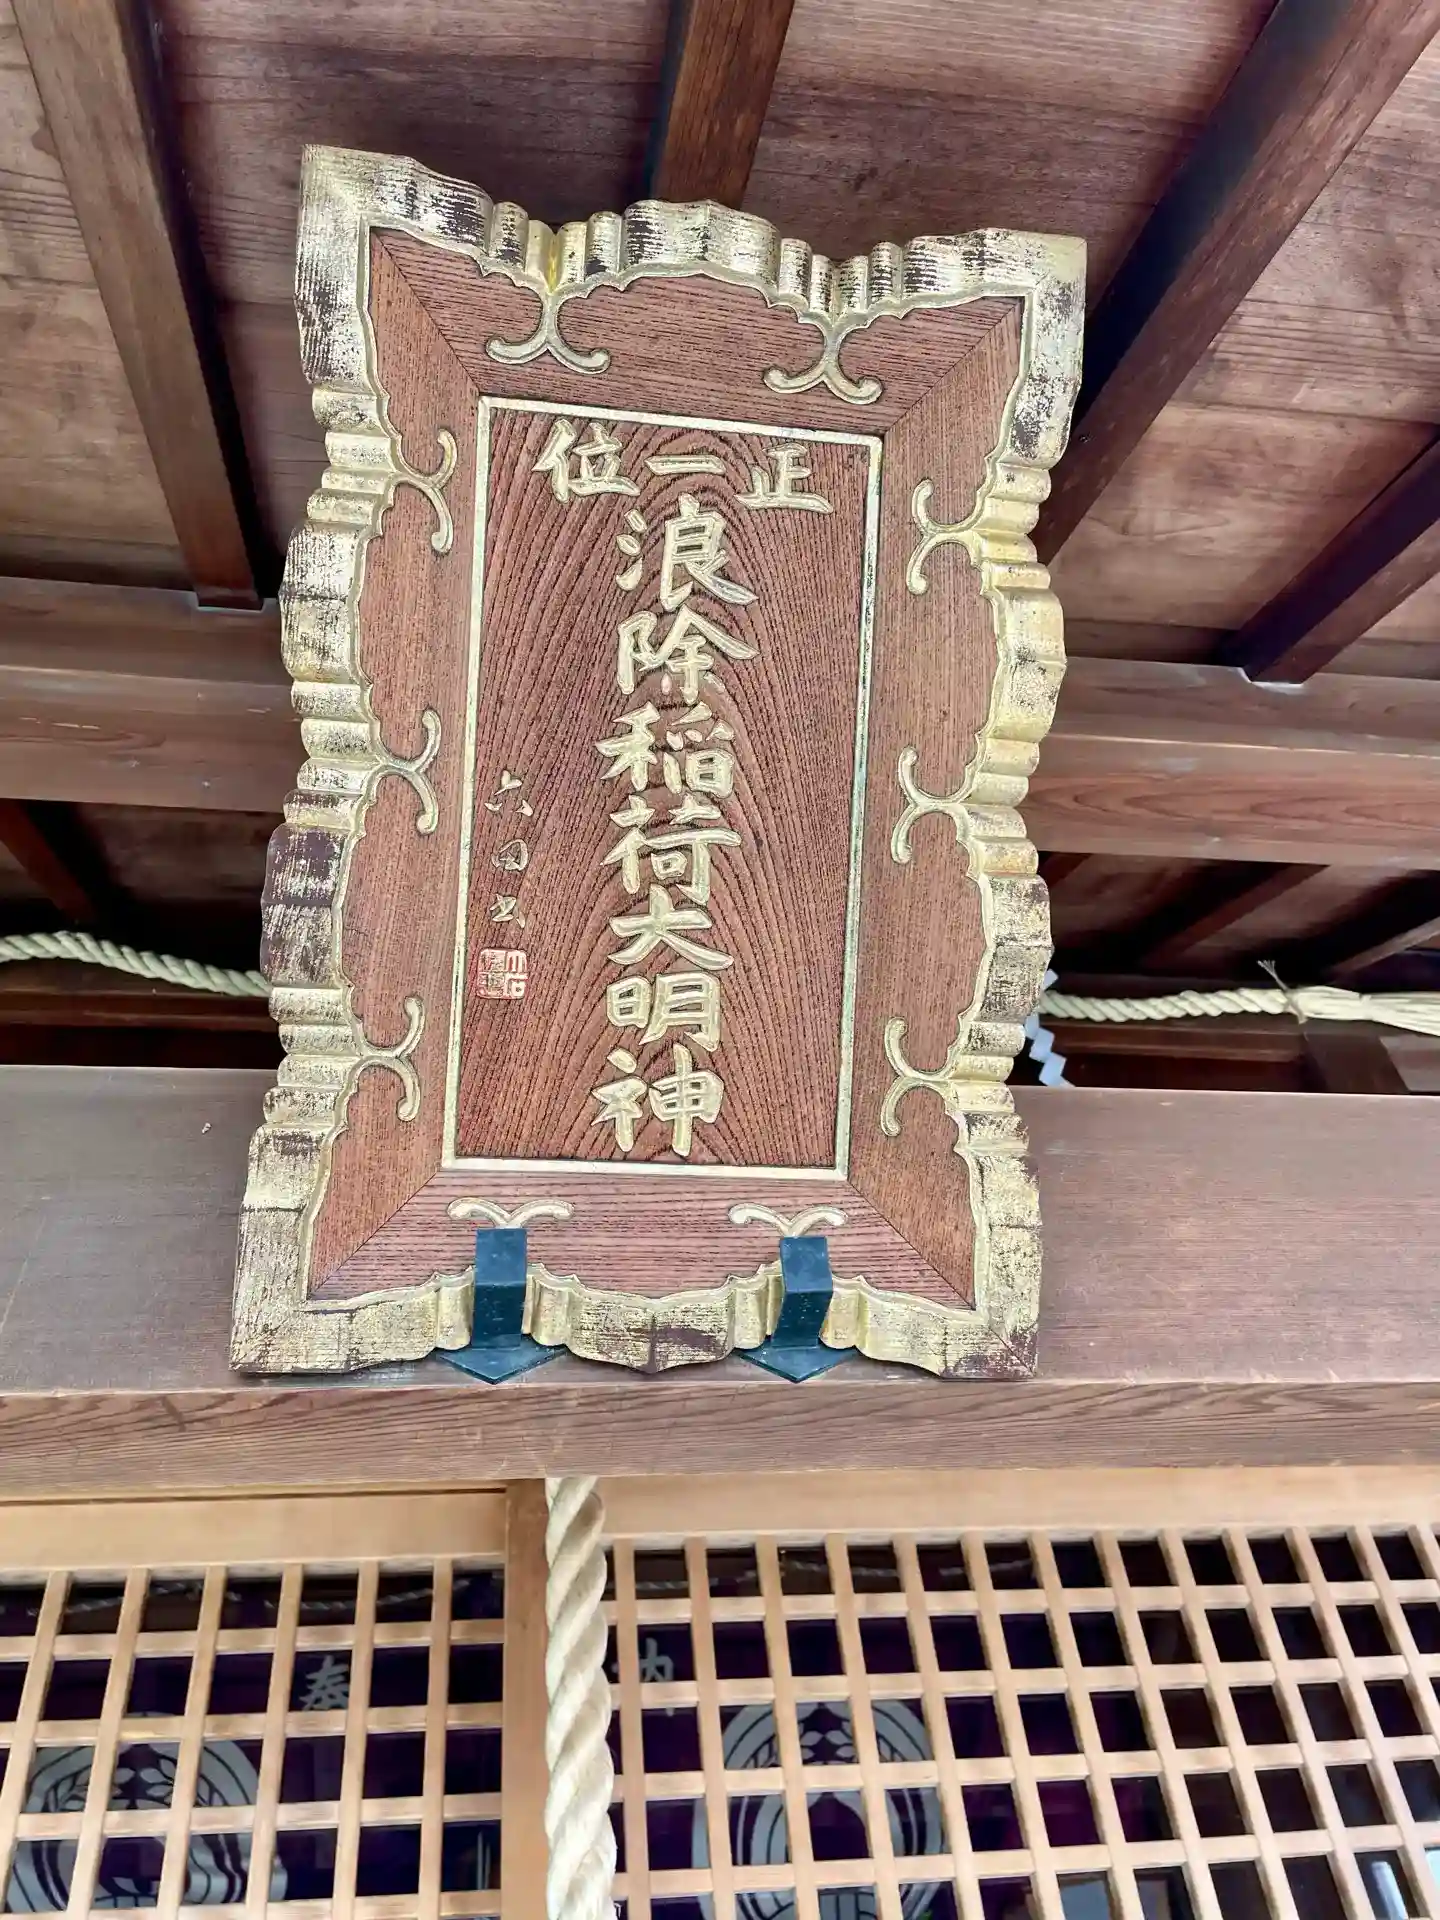 正一位
浪除稲荷大明神
六田書
奉
納